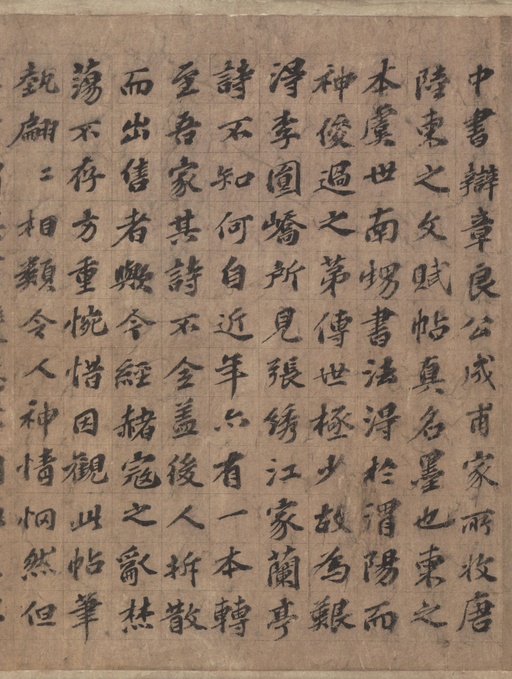 中書辯章良公成甫家所收唐
陸柬之文賦帖真名墨也柬之
本虞世南甥書法得於渭陽而
神俊過之第傳世極少故為艱
得李圓嶠所見張綉江家蘭亭
詩不知何自近年亦有一本轉
至吾家其詩不全盖後人拆散
而出售者歟今經赭寇之亂焚
蕩不存方重惋惜因觀此帖筆
埶翩〻相類令人神情惘然但